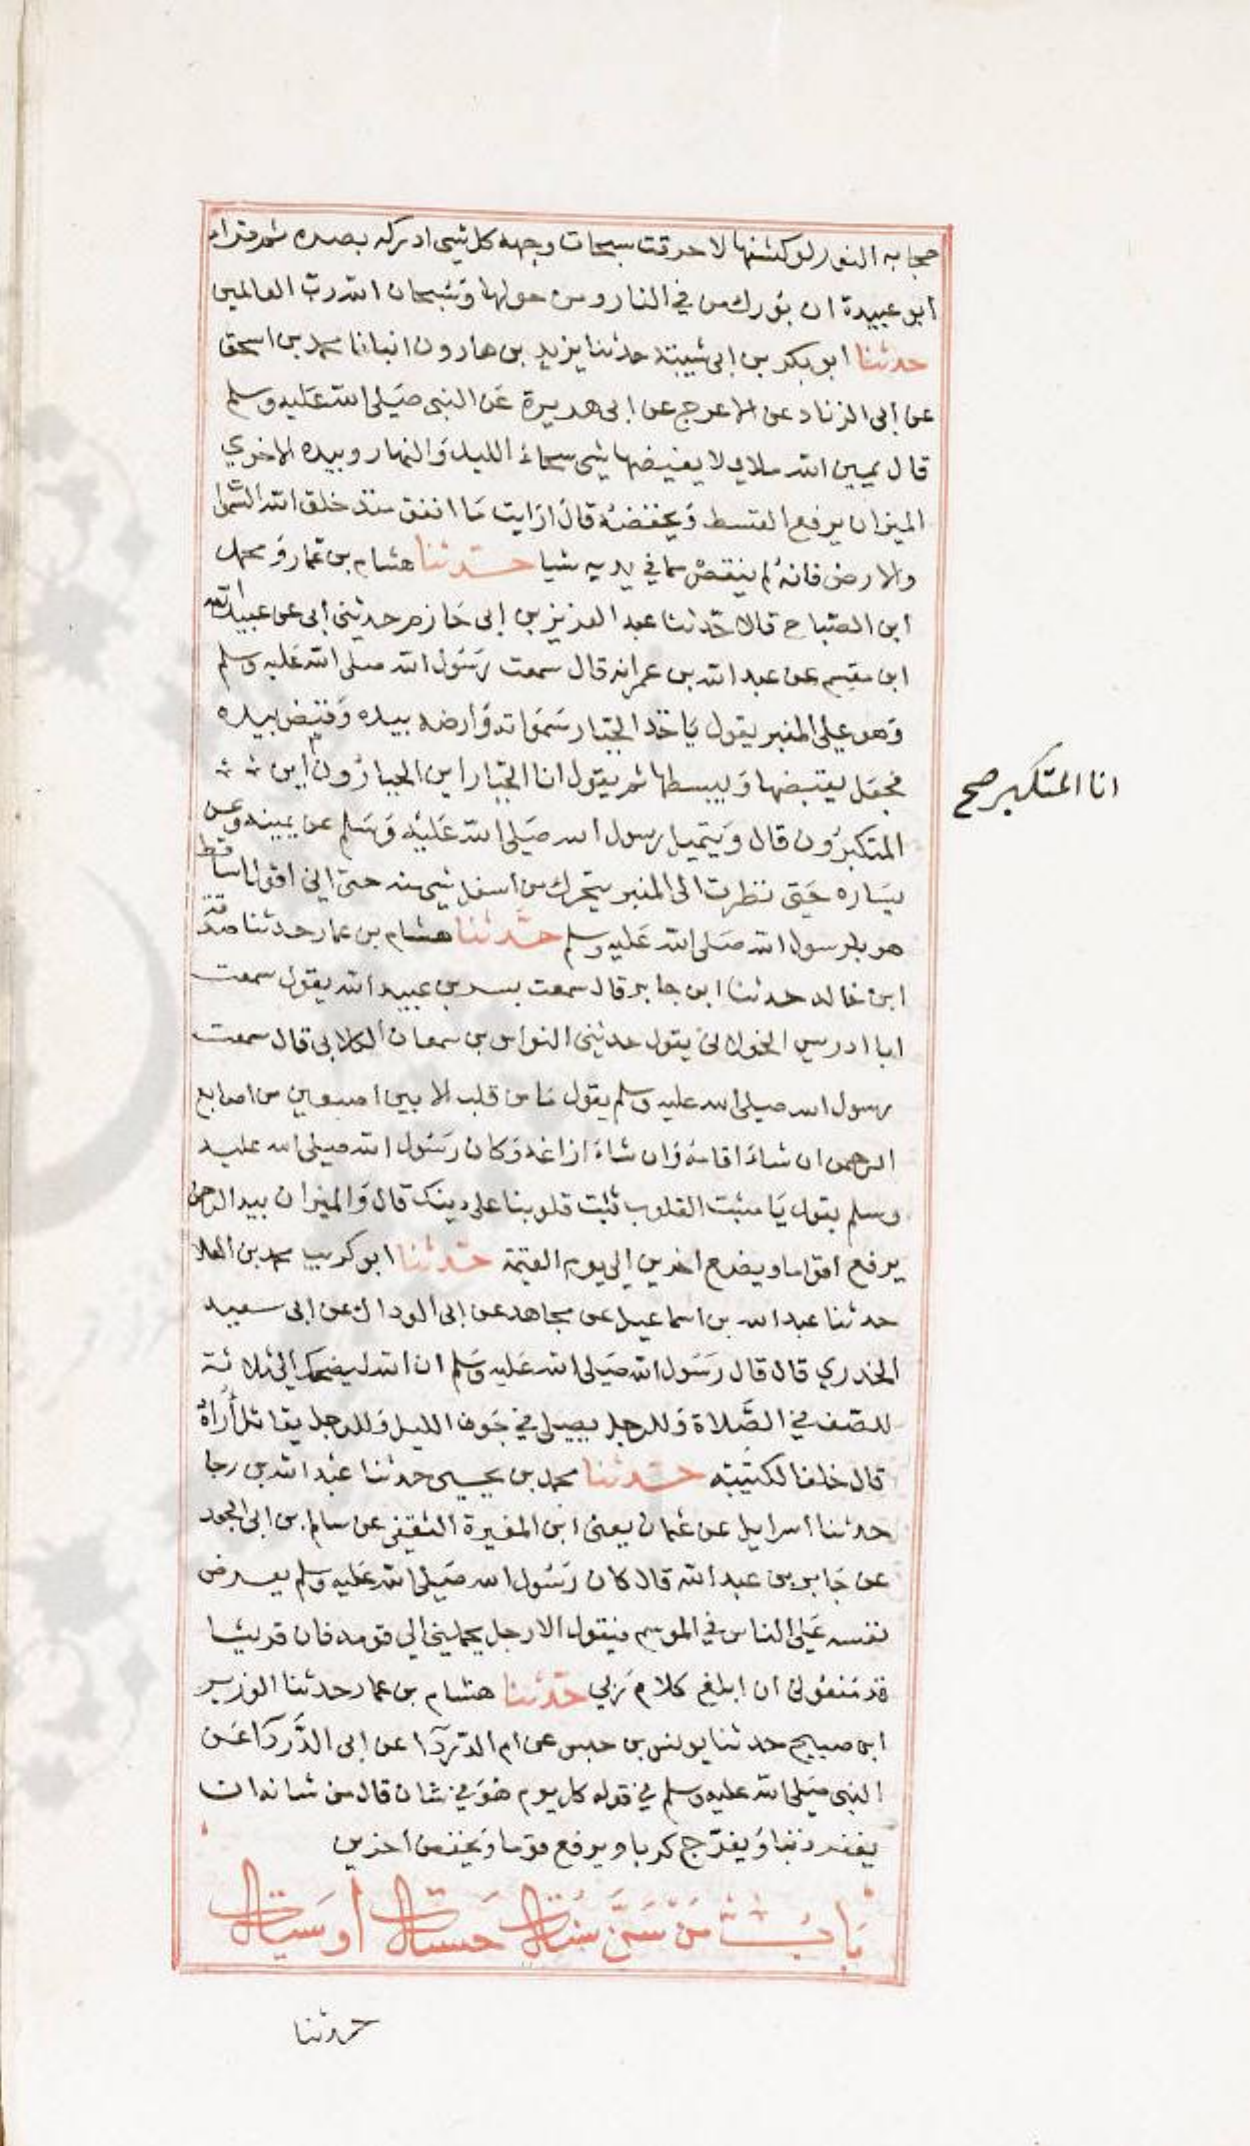 حجابه النور لو كشفها لاحرقت سبحات وجهه كل شيى ادركه بصره ثم قرا
ابو عبيدة ان بورك من في النار ومن حولها وسبحان الله رب العالمين
حدثنا ابو بكر بن ابى شيبة حدثنا يزيد بن هارون انبانا محمد بن اسحق
عن ابى الزناد عن الاعرج عن ابى هريرة عن النبى صلى الله عليه وسلم
قال يمين الله ملاى لا يغيضها شى سحاء الليل والنهار وبيده الاخرى
الميزان يرفع القسط ويخفضه قال ارايت ما انفق منذ خلق الله السموا
والارض فانه لم ينقص مما في يديه شيا حدثنا هشام بن عمار ومحمد
ابن الصباح قالا حدثنا عبد العزيز بن ابى حازم حدثنى ابى عن عبيد الله
ابن مقسم عن عبد الله بن عمر انه قال سمعت رسول الله صلى الله عليه وسلم
وهو على المنبر يقول ياخذ الجبار سمواته وارضه بيده وقبض بيده
فجعل يقبضها ويبسطها ثم يقول انا الجبار اين الجبارون اين
انا المتكبر صح
المتكبرون قال ويتميل رسول الله صلى الله عليه وسلم عن يمينه وعن
يساره حتى نظرت الى المنبر يتحرك من اسفل شى منه حتى انى اقول اساقط
هو برسول الله صلى الله عليه وسلم حدثنا هشام بن عمار حدثنا صدقة
ابن خالد حدثنا ابن جابر قال سمعت بسر بن عبيد الله يقول سمعت
ابا ادريس الخولانى يقول حدثنى النواس بن سمعان الكلابى قال سمعت
رسول الله صلى الله عليه وسلم يقول ما من قلب الا بين اصبعين من اصابع
الرحمن ان شاء اقامه وان شاء ازاغه وكان رسول الله صلى الله عليه
وسلم يقول يا مثبت القلوب ثبت قلوبنا على دينك قال والميزان بيد الرحمن
يرفع اقواما ويضع اخرين الى يوم القيمة حدثنا ابو كريب محمد بن العلا
حدثنا عبد الله بن اسماعيل عن مجاهد عن ابى الوداك عن ابى سعيد
الخدرى قال قال رسول الله صلى الله عليه وسلم ان الله ليضحك الى ثلاثة
للصف في الصلاة وللرجل يصلى في جوف الليل وللرجل يقاتل اراه
قال خلف الكتيبة حدثنا محمد بن يحيى حدثنا عبد الله بن رجا
حدثنا اسرايل عن عثمان يعنى ابن المغيرة الثقفى عن سالم بن ابى الجعد
عن جابر بن عبد الله قال كان رسول الله صلى الله عليه وسلم يعرض
نفسه على الناس في الموسم فيقول الا رجل يحملنى الى قومه فان قريشا
قد منعونى ان ابلغ كلام ربى حدثنا هشام بن عمار حدثنا الوزير
ابن صبيح حدثنا يونس بن حبس عن ام الدردا عن ابى الدردا عن
النبى صلى الله عليه وسلم في قوله كل يوم هو في شان قال من شانه ان
يغفر ذنبا ويفرج كربا ويرفع قوما ويخفض اخرين
باب من سن سنة حسنة او سيئة
حدثنا